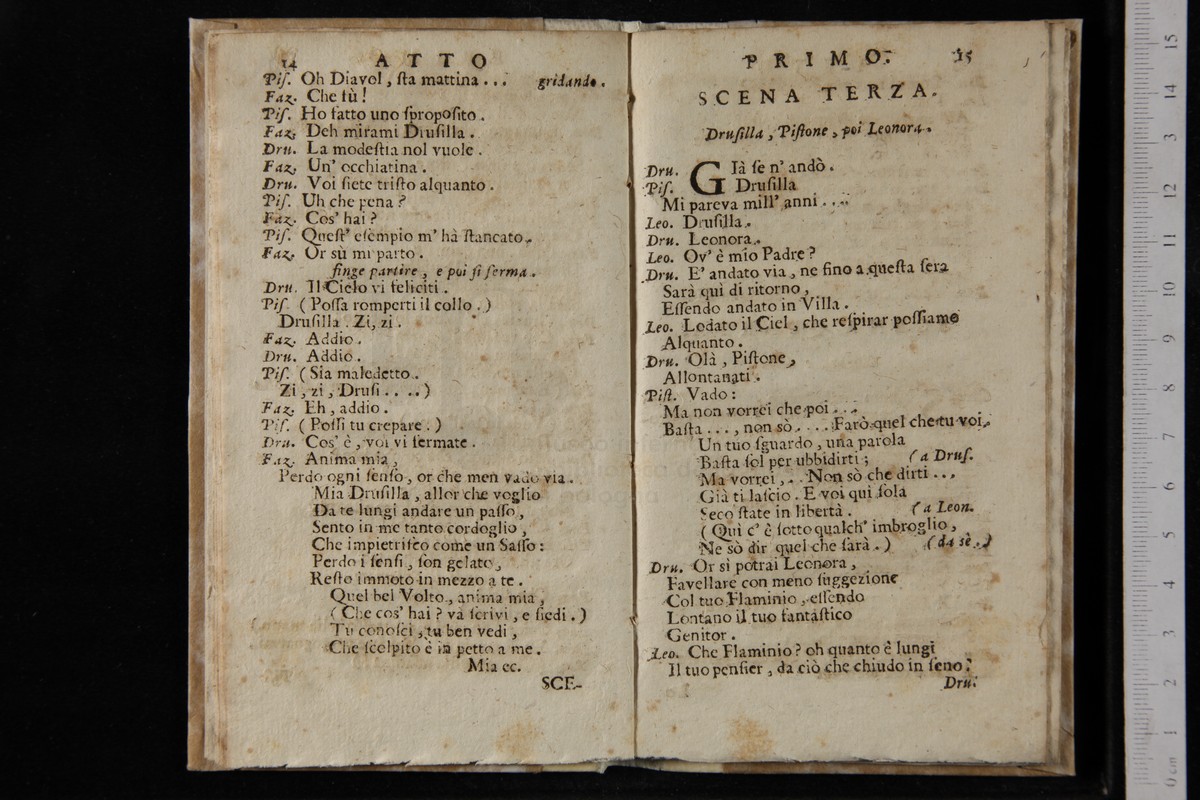 14 ATTO
Piſ. Oh Diavol, ſta mattina ... gridando.
Faz. Che fù!
Piſ. Ho fatto uno ſpropoſito.
Faz. Deh mirami Druſilla.
Dru. La modeſtia nol vuole.
Faz. Un' occhiatina.
Dru. Voi ſiete triſto alquanto.
Piſ. Uh che pena?
Faz. Cos' hai?
Piſ. Queſt' eſempio m' hà ſtancato.
Faz. Or sù mi parto.
finge partire, e poi ſi ferma.
Dru. Il Cielo vi feliciti.
Piſ. (Poſſa romperti il collo.)
Druſilla. Zi, zi.
Faz. Addio.
Dru. Addio.
Piſ. (Sia maledetto.
Zi, zi, Druſi....)
Faz. Eh, addio.
Piſ. (Poſſi tu crepare.)
Dru. Cos' è, voi vi fermate.
Faz. Anima mia,
Perdo ogni ſenſo, or che men vado via.
Mia Druſilla, allor che voglio
Da te lungi andare un paſſo,
Sento in me tanto cordoglio,
Che impietriſco come un Saſſo:
Perdo i ſenſi, ſon gelato,
Reſto immoto in mezzo a te.
Quel bel Volto, anima mia,
(Che cos' hai? và ſcrivi, e ſiedi.)
Tu conoſci, tu ben vedi,
Che ſcolpito è in petto a me.
Mia ec.
SCE-
PRIMO. 15
SCENA TERZA.
Druſilla, Piſtone, poi Leonora.
Dru. GIà ſe n' andò.
Piſ. Druſilla
Mi pareva mill' anni....
Leo. Druſilla.
Dru. Leonora.
Leo. Ov' è mio Padre?
Dru. E' andato via, ne fino a queſta ſera
Sarà quì di ritorno,
Eſſendo andato in Villa.
Leo. Lodato il Ciel, che reſpirar poſſiamo
Alquanto.
Dru. Olà, Piſtone,
Allontanati.
Piſt. Vado:
Ma non vorrei che poi...
Baſta..., non sò.... Farò quel che tu voi.
Un tuo ſguardo, una parola
Baſta ſol per ubbidirti; (a Druſ.
Ma vorrei,.. Non sò che dirti...
Già ti laſcio. E voi qui ſola
Seco ſtate in libertà. (a Leon.
(Quì c' è ſotto qualch' imbroglio,
Ne sò dir quel che ſarà.) (da sè.)
Dru. Or sì potrai Leonora,
Favellare con meno ſuggezione
Col tuo Flaminio, eſſendo
Lontano il tuo fantaſtico
Genitor.
Leo. Che Flaminio? oh quanto è lungi
Il tuo penſier, da ciò che chiudo in ſeno.
Dru.
15
14
13
12
11
10
9
8
7
6
5
4
3
2
1
0 cm